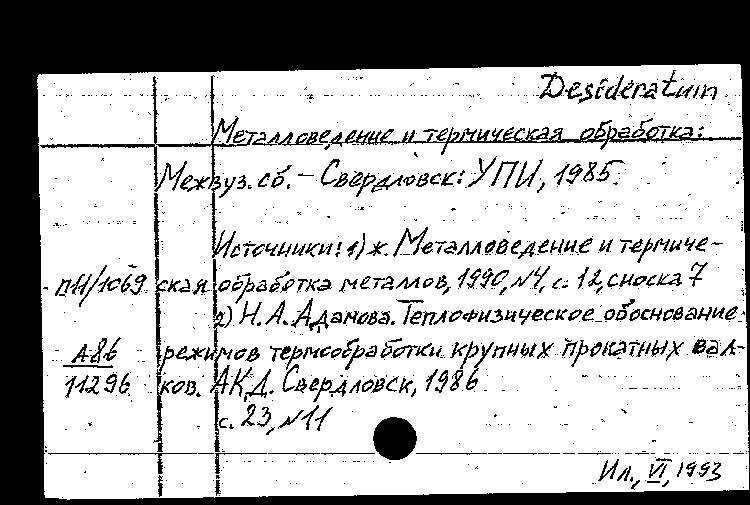 Desideratum
Металловедение и термическая обработка:
Межвуз. сб. – Свердловск: УПИ, 1985.
Источники: 1) ж. Металловедение и термиче-
п11/1069 ская обработка металлов, 1990, №4, с. 12, сноска 7
2) Н. А. Адамова. Теплофизическое обоснование
А86 режимов термообработки крупных прокатных вал-
11296 ков. АКД. Свердловск, 1986
с. 23, №11
Ил., VI, 1993